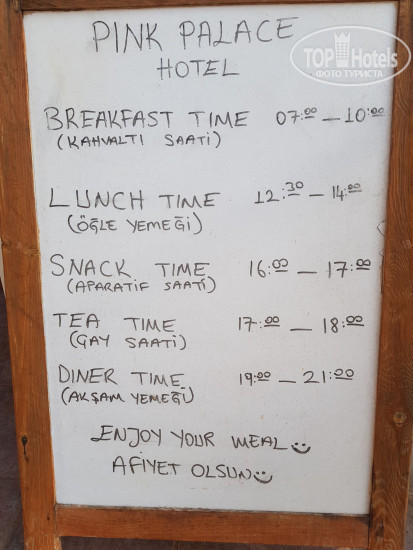 PINK PALACE
HOTEL
TOPHotels
ФОТО ТУРИСТА
BREAKFAST TIME 07:00 — 10:00
(KAHVALTI SAATİ)
LUNCH TIME 12:30 — 14:00
(ÖĞLE YEMEĞİ)
SNACK TIME 16:00 — 17:00
(APARATİF SAATİ)
TEA TIME 17:00 — 18:00
(GAY SAATİ)
DINER TIME 19:00 — 21:00
(AKŞAM YEMEĞİ)
ENJOY YOUR MEAL
AFİYET OLSUN